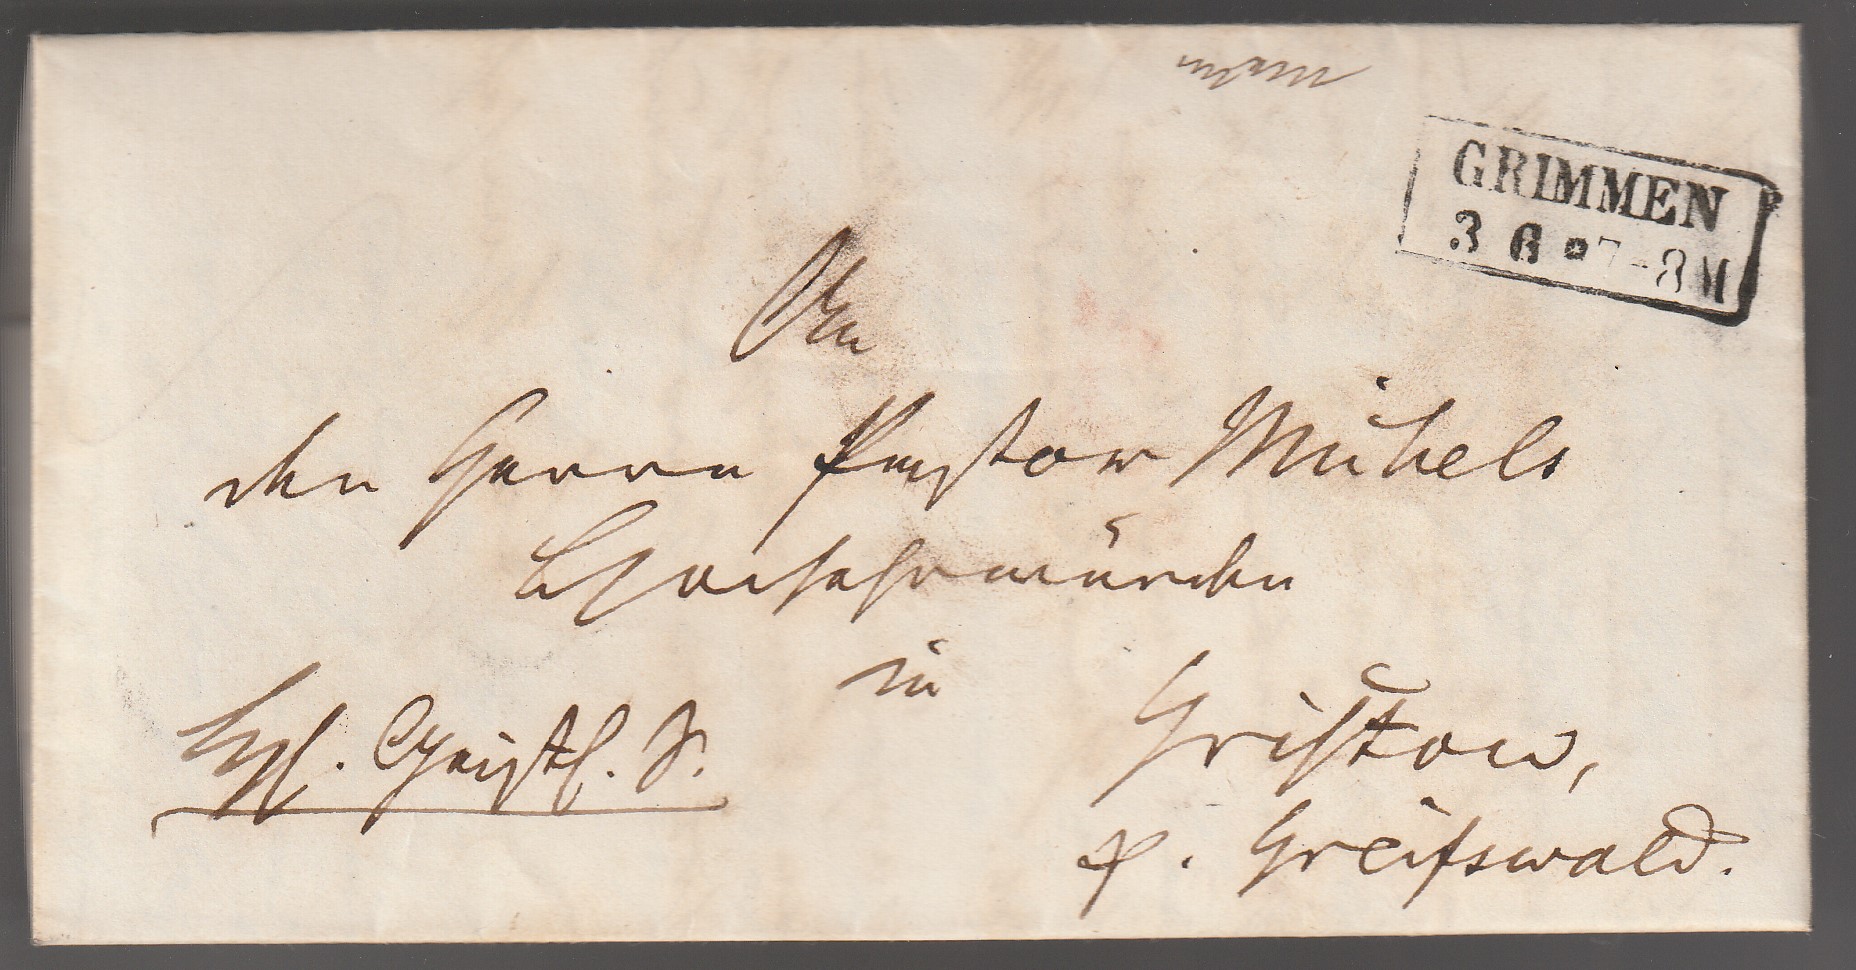 GRIMMEN
3 6 * 7-8 M
An
den Herrn Pastor Mühels
Hochehrwürden
in
Gristow,
p. Greifswald.
Geistl. S.